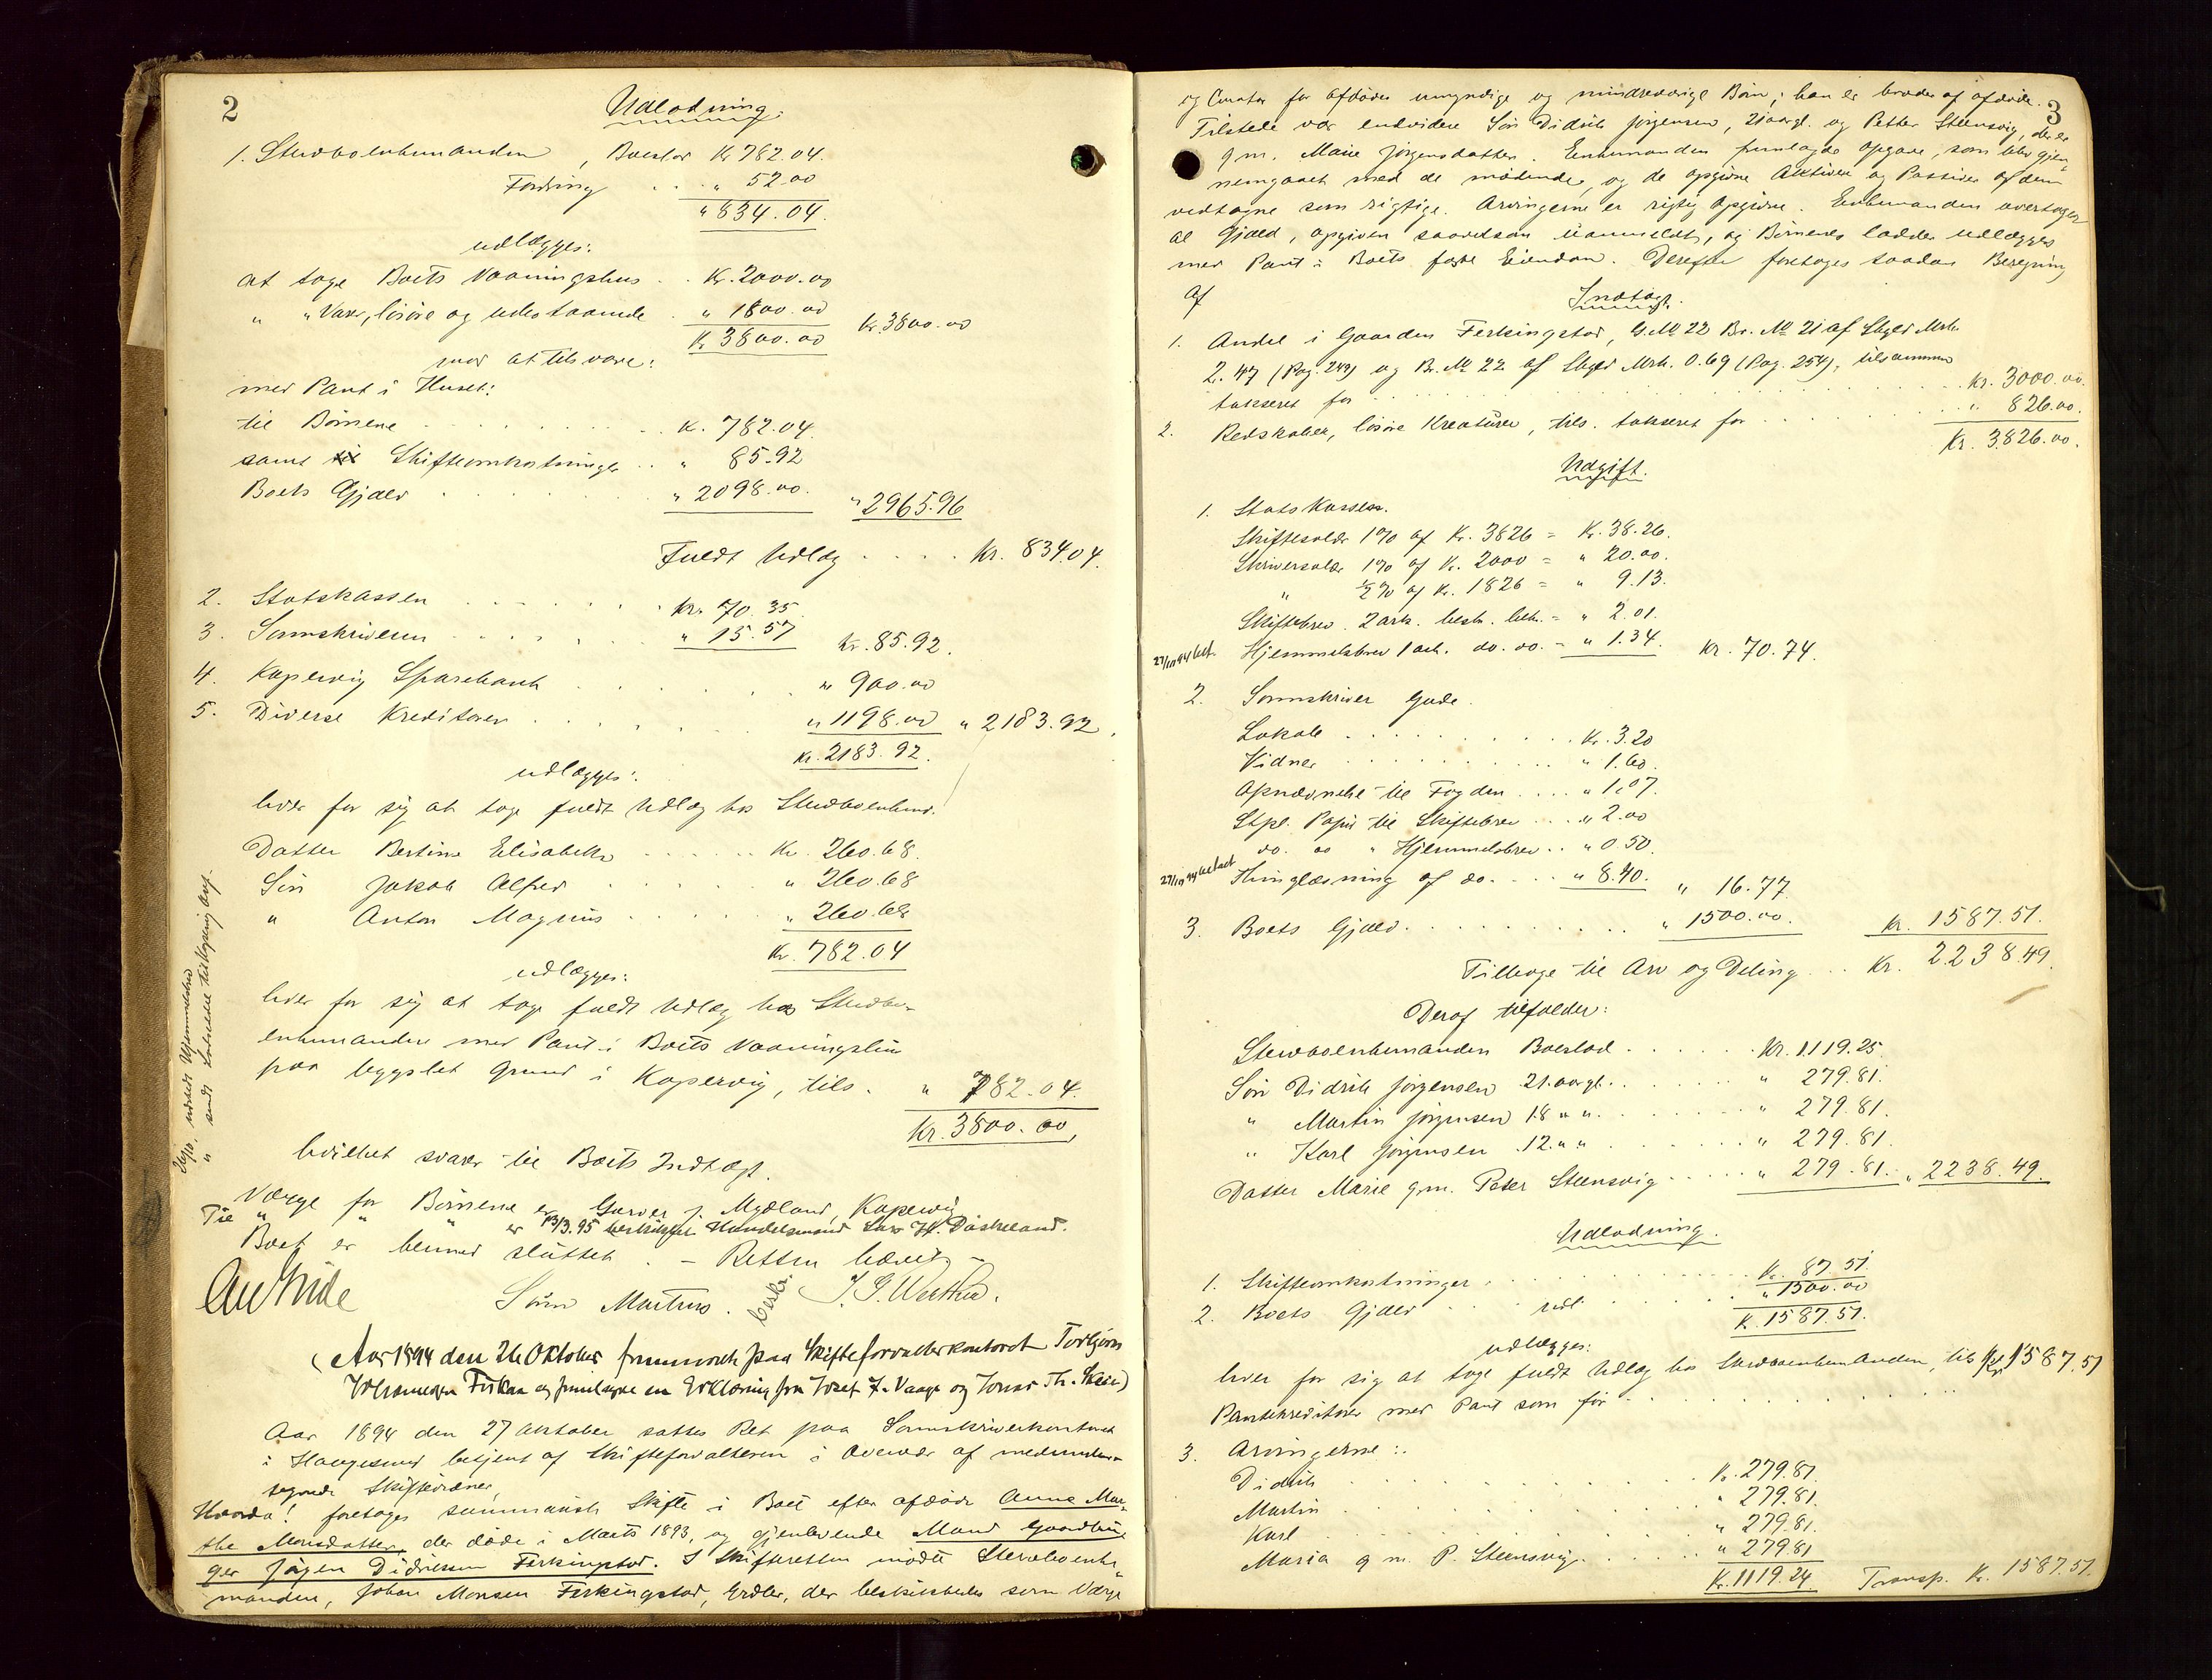 2
Udlodning.
1. Stervboenkemanden, Boeslod Kr 782.04.
Fordring . . „ 52.00
„ 834.04.
udlægges:
at tage Boets Vaaningshus . . Kr. 2000.00
„ „ Varer, løsøre og udestaaende . „ 1800.00
Kr. 3800.00 Kr. 3800.00
mod at tilsvare:
med Pant i Huset:
til Børnene . . . . Kr. 782.04.
samt Skifteomkostninger . . „ 85.92
Boets Gjæld . . . . „ 2098.00. „ 2965.96
Fuldt Udlæg . . . . Kr. 834.04.
2. Statskassen . . . . Kr. 70.35.
3. Sorenskriveren . . . . „ 15.57 Kr. 85.92.
4. Kopervig Sparebank . . . . „ 900.00
5. Diverse Kreditorer . . . . „ 1198.00 „ 2183.92.
Kr. 2183.92.
udlægges:
hver for sig at tage fuldt Udlæg hos Stervboenkem.
Datter Bertine Elisabeth . . . . Kr. 260.68.
Søn Jakob Alfred . . . . „ 260.68
„ Anton Magnus . . . . „ 260.68
Kr. 782.04
udlægges:
hver for sig at tage fuldt Udlæg hos Stervbo-
enkemanden med Pant i Boets Vaaningshus
paa bygslet Grund i Kopervig, tils. „ 782.04.
Kr. 3800.00,
hvilket svarer til Boets Indtægt.
Værge for Børnene er Garver J. Mydland, Kopervig
Til „ „ „ er 13/3.95 beskikket Handelsmand Lars H. Daskeland.
Boet er hermed sluttet. – Retten hævet –
26/10. udstedt Hjemmelsbrev
„ sendt
Sørn Martens. J. G. Wathne.
(Aar 1894 den 26 Oktober fremmødte paa Skifteforvalterkontoret Torbjørn
og fremlagde en Erklæring fra Josef J. Vaage og Jonas Th.
Aar 1894 den 27 oktober sattes Ret paa Sorenskriverkontoret
i Haugesund betjent af Skifteforvalteren i Overvær af medunder-
tegnede Skiftevidner,
Hvorda! foretoges summarisk Skifte i Boet efter afdøde Anna Mar-
the Monsdatter, der døde i Marts 1893, og gjenlevende Mand Gaardbru-
ger Jørgen Didriksen Ferkingstad. I Skifteretten mødte Stervboenke-
manden, Johan Monsen Ferkingstad, Ældre, der beskikkedes som Værge
3
og Curator for afdødes umyndige og mindreaarige Børn; han er broder af afdøde.
Tilstede var endvidere Søn Didrik Jørgensen, 21 aargl. og Petter Steensvig, der er
g.m. Marie Jørgensdatter. Enkemanden fremlagde Opgave, som blev gjen-
nemgaaet med de mødende, og de opgivne Aktiver og Passiver af dem
vedtagne som rigtige. Arvingerne er rigtig Opgivne. Enkemanden overtager
al Gjæld, opgiven saavelsom uanmeldt, og Børnenes lodder udlægges
med Pant i Boets faste Eiendom. Derefter foretoges saadan Beregning
af
Indtægt.
1. Andel i Gaarden Ferkingstad, G.No 22 Br. No 21 af Skyld Mrk.
2.47 (Pag. 249) og Br. No 22 af Skyld Mrk. 0.69 (Pag. 254), tilsammen
takseret for . . . . Kr. 3000.00.
2. Redskaber, løsøre Kreaturer, tils. takseret for . . . . „ 826.00.
Kr. 3826.00.
Udgift.
1. Statskassen.
Skiftesalær 1% af Kr. 3826 = Kr. 38.26.
Skriversalær 1% af Kr. 2000 = „ 20.00.
„ ½% af Kr. 1826 = „ 9.13.
Skiftebrev 2 ark. besk. bek. = „ 2.01.
27/10 94 bet. Hjemmelsbrev 1 ark. do. do. = „ 1.34. Kr. 70.74.
2. Sorenskriver Gude.
Lokale . . . . Kr. 3.20
Vidner . . . . „ 1.60.
Opnævnelse til Fogden . . . . „ 1.07.
Stpl. Papir til Skiftebrev . . . „ 2.00
do. do „ Hjemmelsbrev . . „ 0.50.
27/10 94 betalt Thinglæsning af do. . . . „ 8.40. „ 16.77
3. Boets Gjæld . . . . „ 1500.00. Kr. 1587.51.
Tilbage til Arv og Deling . . . Kr. 2238.49.
Deraf tilfalder:
Stervboenkemanden Boeslod . . . . Kr. 1119.25.
Søn Didrik Jørgensen 21. aargl. . . . „ 279.81.
„ Martin Jørgensen 18 „ „ . . . . „ 279.81.
„ Karl Jørgensen .12. „ „ . . . . „ 279.81.
Datter Marie g.m. Peter Steensvig . . . . „ 279.81. „ 2238.49.
Udlodning.
1. Skifteomkostninger . . . . Kr. 87.51.
2. Boets Gjæld . . . . „ 1500.00
Kr. 1587.51.
udlægges:
hver for sig at tage fuldt Udlæg hos Stervboenkemanden, tils Kr. 1587.51
Pantekreditorer med Pant som før . . . .
3. Arvingerne:
Didrik . . . . Kr. 279.81.
Martin . . . . „ 279.81.
Karl . . . . „ 279.81.
Maria g m. P. Steensvig. . . . . „ 279.81
Kr. 1119.24 Transp. Kr. 1587.51.